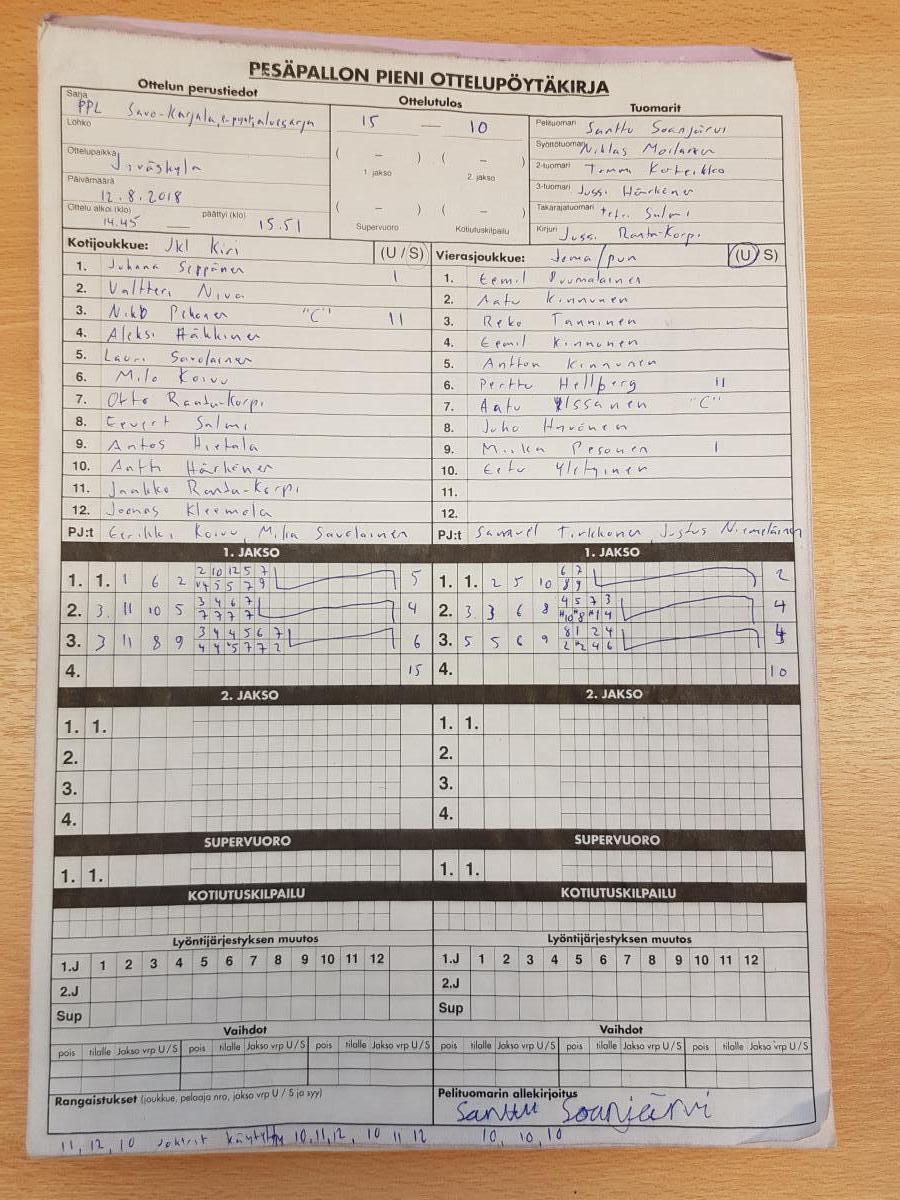 PESÄPALLON PIENI OTTELUPÖYTÄKIRJA
Ottelun perustiedot
Ottelutulos
Tuomarit
Sarja PPL Savo-Karjala,
Lohko
Ottelupaikka Jyväskylä
Päivämäärä 12.8.2018
Ottelu alkoi (klo) 14.45 — päättyi (klo) 15.51
15 — 10
( – ) ( – )
1. jakso 2. jakso
( – ) ( – )
Supervuoro Kotiutuskilpailu
Pelituomari Santtu Soanjärvi
Syöttötuomari Niklas Moilanen
2-tuomari
3-tuomari Jussi Härkönen
Takarajatuomari Salmi
Kirjuri Jussi Ranta-Korpi
Kotijoukkue: Jkl Kiri (U / S)
1. Juhana Seppänen I
2. Valtteri Niva
3. "C" II
4. Aleksi Häkkinen
5. Lauri Savolainen
6. Milo Koivu
7. Otto Ranta-Korpi
8. Eevert Salmi
9. Antos Hietala
10. Antti Härkönen
11. Jaakko Ranta-Korpi
12. Joonas Kleemola
PJ:t Eerikki Koivu, Mika Savolainen
Vierasjoukkue: Joma/pun (U / S)
1. Eemil Puumalainen
2. Aatu Kinnunen
3. Reko Tanninen
4. Eemil Kinnunen
5. Antton Kinnunen
6. Perttu Hellberg II
7. Aatu Issanen "C"
8. Juho Hyvönen
9. Miika Pesonen I
10. Eetu
11.
12.
PJ:t Samuel Tirkkonen, Justus Niemeläinen
1. JAKSO
1. 1. 1 6 2 2 10 12 5 7 5
4 5 5 7 9
2. 3 11 10 5 3 4 6 7 4
7 7 7 7
3. 3 11 8 9 3 4 4 5 6 7 6
4 4 5 7 7 2
4. 15
1. JAKSO
1. 1. 2 5 10 6 7 2
8 9
2. 3 3 6 8 4 5 7 3 4
3. 5 5 6 9 8 1 2 4 4
2 2 4 6
4. 10
2. JAKSO
1. 1.
2.
3.
4.
2. JAKSO
1. 1.
2.
3.
4.
SUPERVUORO
1. 1.
SUPERVUORO
1. 1.
KOTIUTUSKILPAILU
KOTIUTUSKILPAILU
Lyöntijärjestyksen muutos
1.J 1 2 3 4 5 6 7 8 9 10 11 12
2.J
Sup
Lyöntijärjestyksen muutos
1.J 1 2 3 4 5 6 7 8 9 10 11 12
2.J
Sup
Vaihdot
pois tilalle Jakso vrp U / S pois tilalle Jakso vrp U / S pois tilalle Jakso vrp U / S
Vaihdot
pois tilalle Jakso vrp U / S pois tilalle Jakso vrp U / S pois tilalle Jakso vrp U / S
Rangaistukset (joukkue, pelaaja nro, jakso vrp U / S ja syy)
Pelituomarin allekirjoitus
Santtu Soanjärvi
11, 12, 10 Jokerit käytetty 10, 11, 12, 10 11 12 10, 10, 10